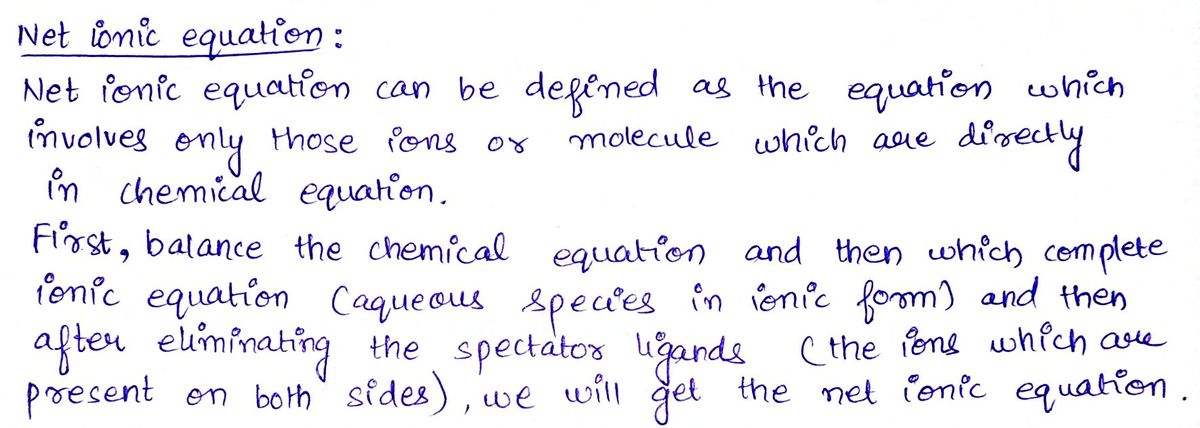 Net ionic equation :
Net ionic equation can be defined as the equation which
involves only those ions or molecule which are directly
in chemical equation.
First, balance the chemical equation and then which complete
ionic equation (aqueous species in ionic form) and then
after eliminating the spectator ligands (the ions which are
present on both sides), we will get the net ionic equation.